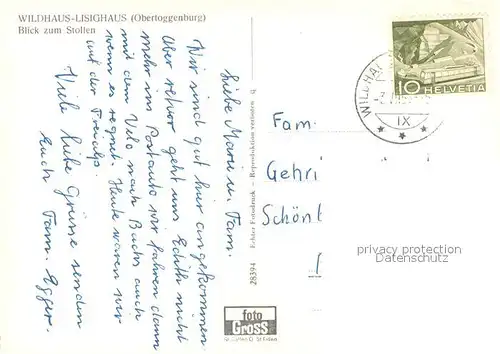 WILDHAUS-LISIGHAUS (Obertoggenburg)
Blick zum Stollen
Liebe Marie u. Fam.
Wir sind gut hier angekommen.
Aber retour geht uns Edith nicht
mehr ins Postauto wir fahren dann
mit dem Velo nach Buchs auch
wenn es regnet. Heute waren wir
auf der Freialp.
Viele liebe Grüsse senden
Euch Fam. Egger.
28394 Echter Fotodruck — Reproduktion verboten
foto
Gross
St. Gallen
10 HELVETIA
WILDHA
IX
Fam.
Gehri
Schönt
privacy protection
Datenschutz